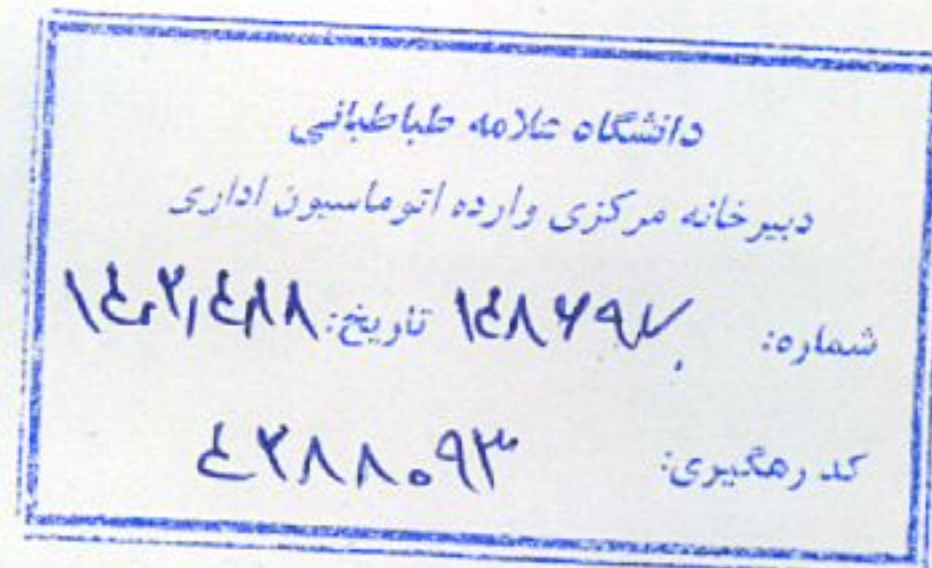 دانشگاه علامه طباطبائی
دبیرخانه مرکزی وارده اتوماسیون اداری
شماره: تاریخ:
کد رهگیری: ۴۲۸۸۰۹۳